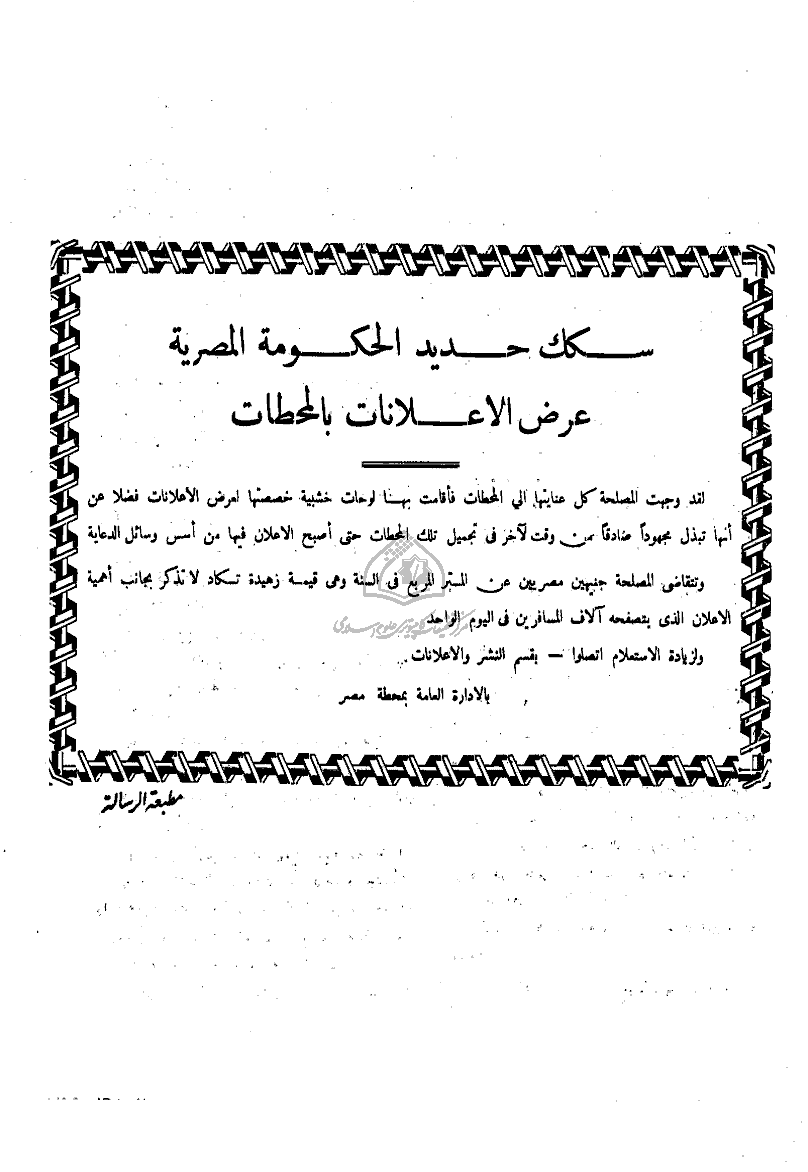 سكك حديد الحكومة المصرية
عرض الاعلانات بالمحطات
لقد وجهت المصلحة كل عنايتها الي المحطات فأقامت بهنا لوحات خشبية خصصتها لعرض الأعلانات فضلا عن
أنها تبذل مجهوداً صادقاً من وقت لآخر فى تجميل تلك المحطات حتى أصبح الاعلان فيها من أسس وسائل الدعاية
وتتقاضى المصلحة جنيهين مصريين عن المتر المربع فى السنة وهى قيمة زهيدة تكاد لا تذكر بجانب أهمية
الاعلان الذى يتصفحه آلاف المسافرين فى اليوم الواحد
ولزيادة الاستعلام اتصلوا — بقسم النشر والاعلانات.
بالادارة العامة بمحطة مصر
مطبعة الرسالة